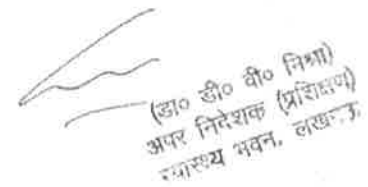 (डा० डी० वी० मिश्रा)
अपर निदेशक (प्रशिक्षण)
स्वास्थ्य भवन, लखनऊ